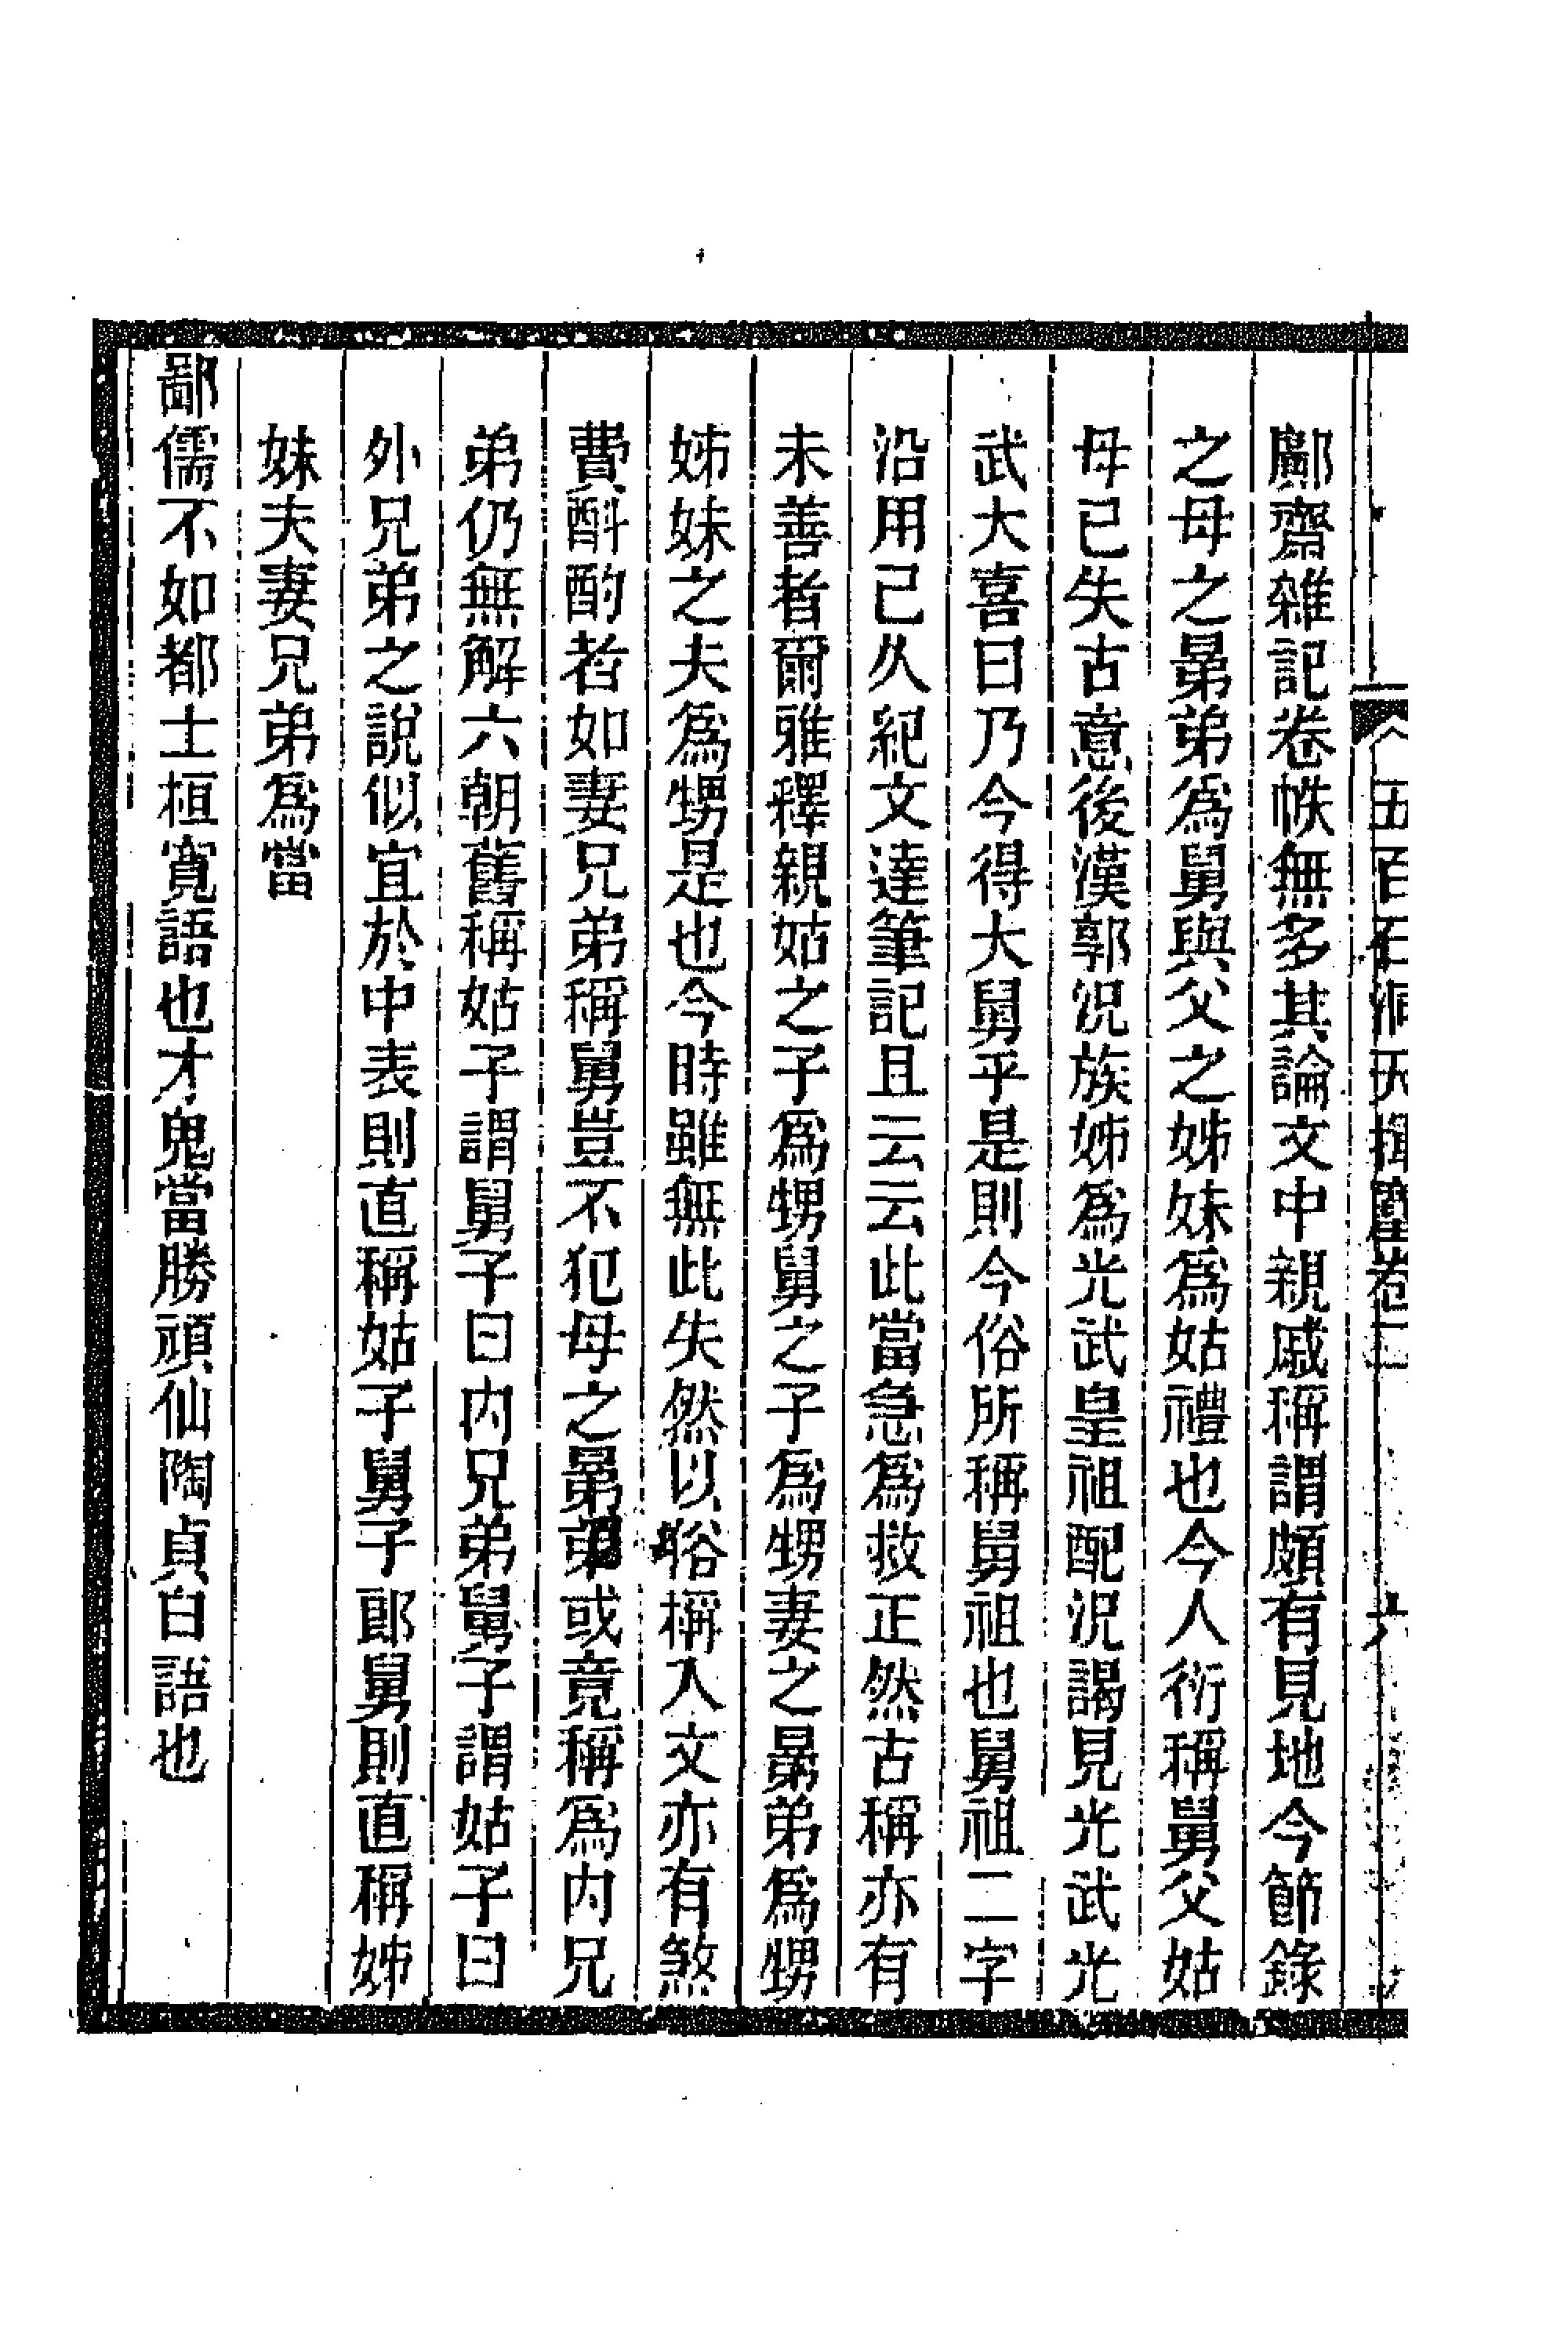 五百石洞天揮麈卷二
六
鄺齋雜記卷帙無多其論文中親戚稱謂頗有見地今節錄
之母之晜弟為舅與父之姊妹為姑禮也今人衍稱舅父姑
母已失古意後漢郭況族姊為光武皇祖配況謁見光武光
武大喜曰乃今得大舅乎是則今俗所稱舅祖也舅祖二字
沿用已久紀文達筆記且云云此當急為救正然古稱亦有
未善者爾雅釋親姑之子為甥舅之子為甥妻之晜弟為甥
姊妹之夫為甥是也今時雖無此失然以俗稱入文亦有煞
費斟酌者如妻兄弟稱舅豈不犯母之晜弟或竟稱為內兄
弟仍無解六朝舊稱姑子謂舅子曰內兄弟舅子謂姑子曰
外兄弟之說似宜於中表則直稱姑子舅子郎舅則直稱姊
妹夫妻兄弟為當
鄙儒不如都士桓寬語也才鬼當勝頑仙陶貞白語也